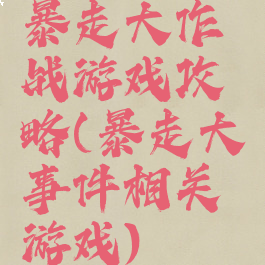 暴走大作
战游戏攻
略(暴走大
事件相关
游戏)